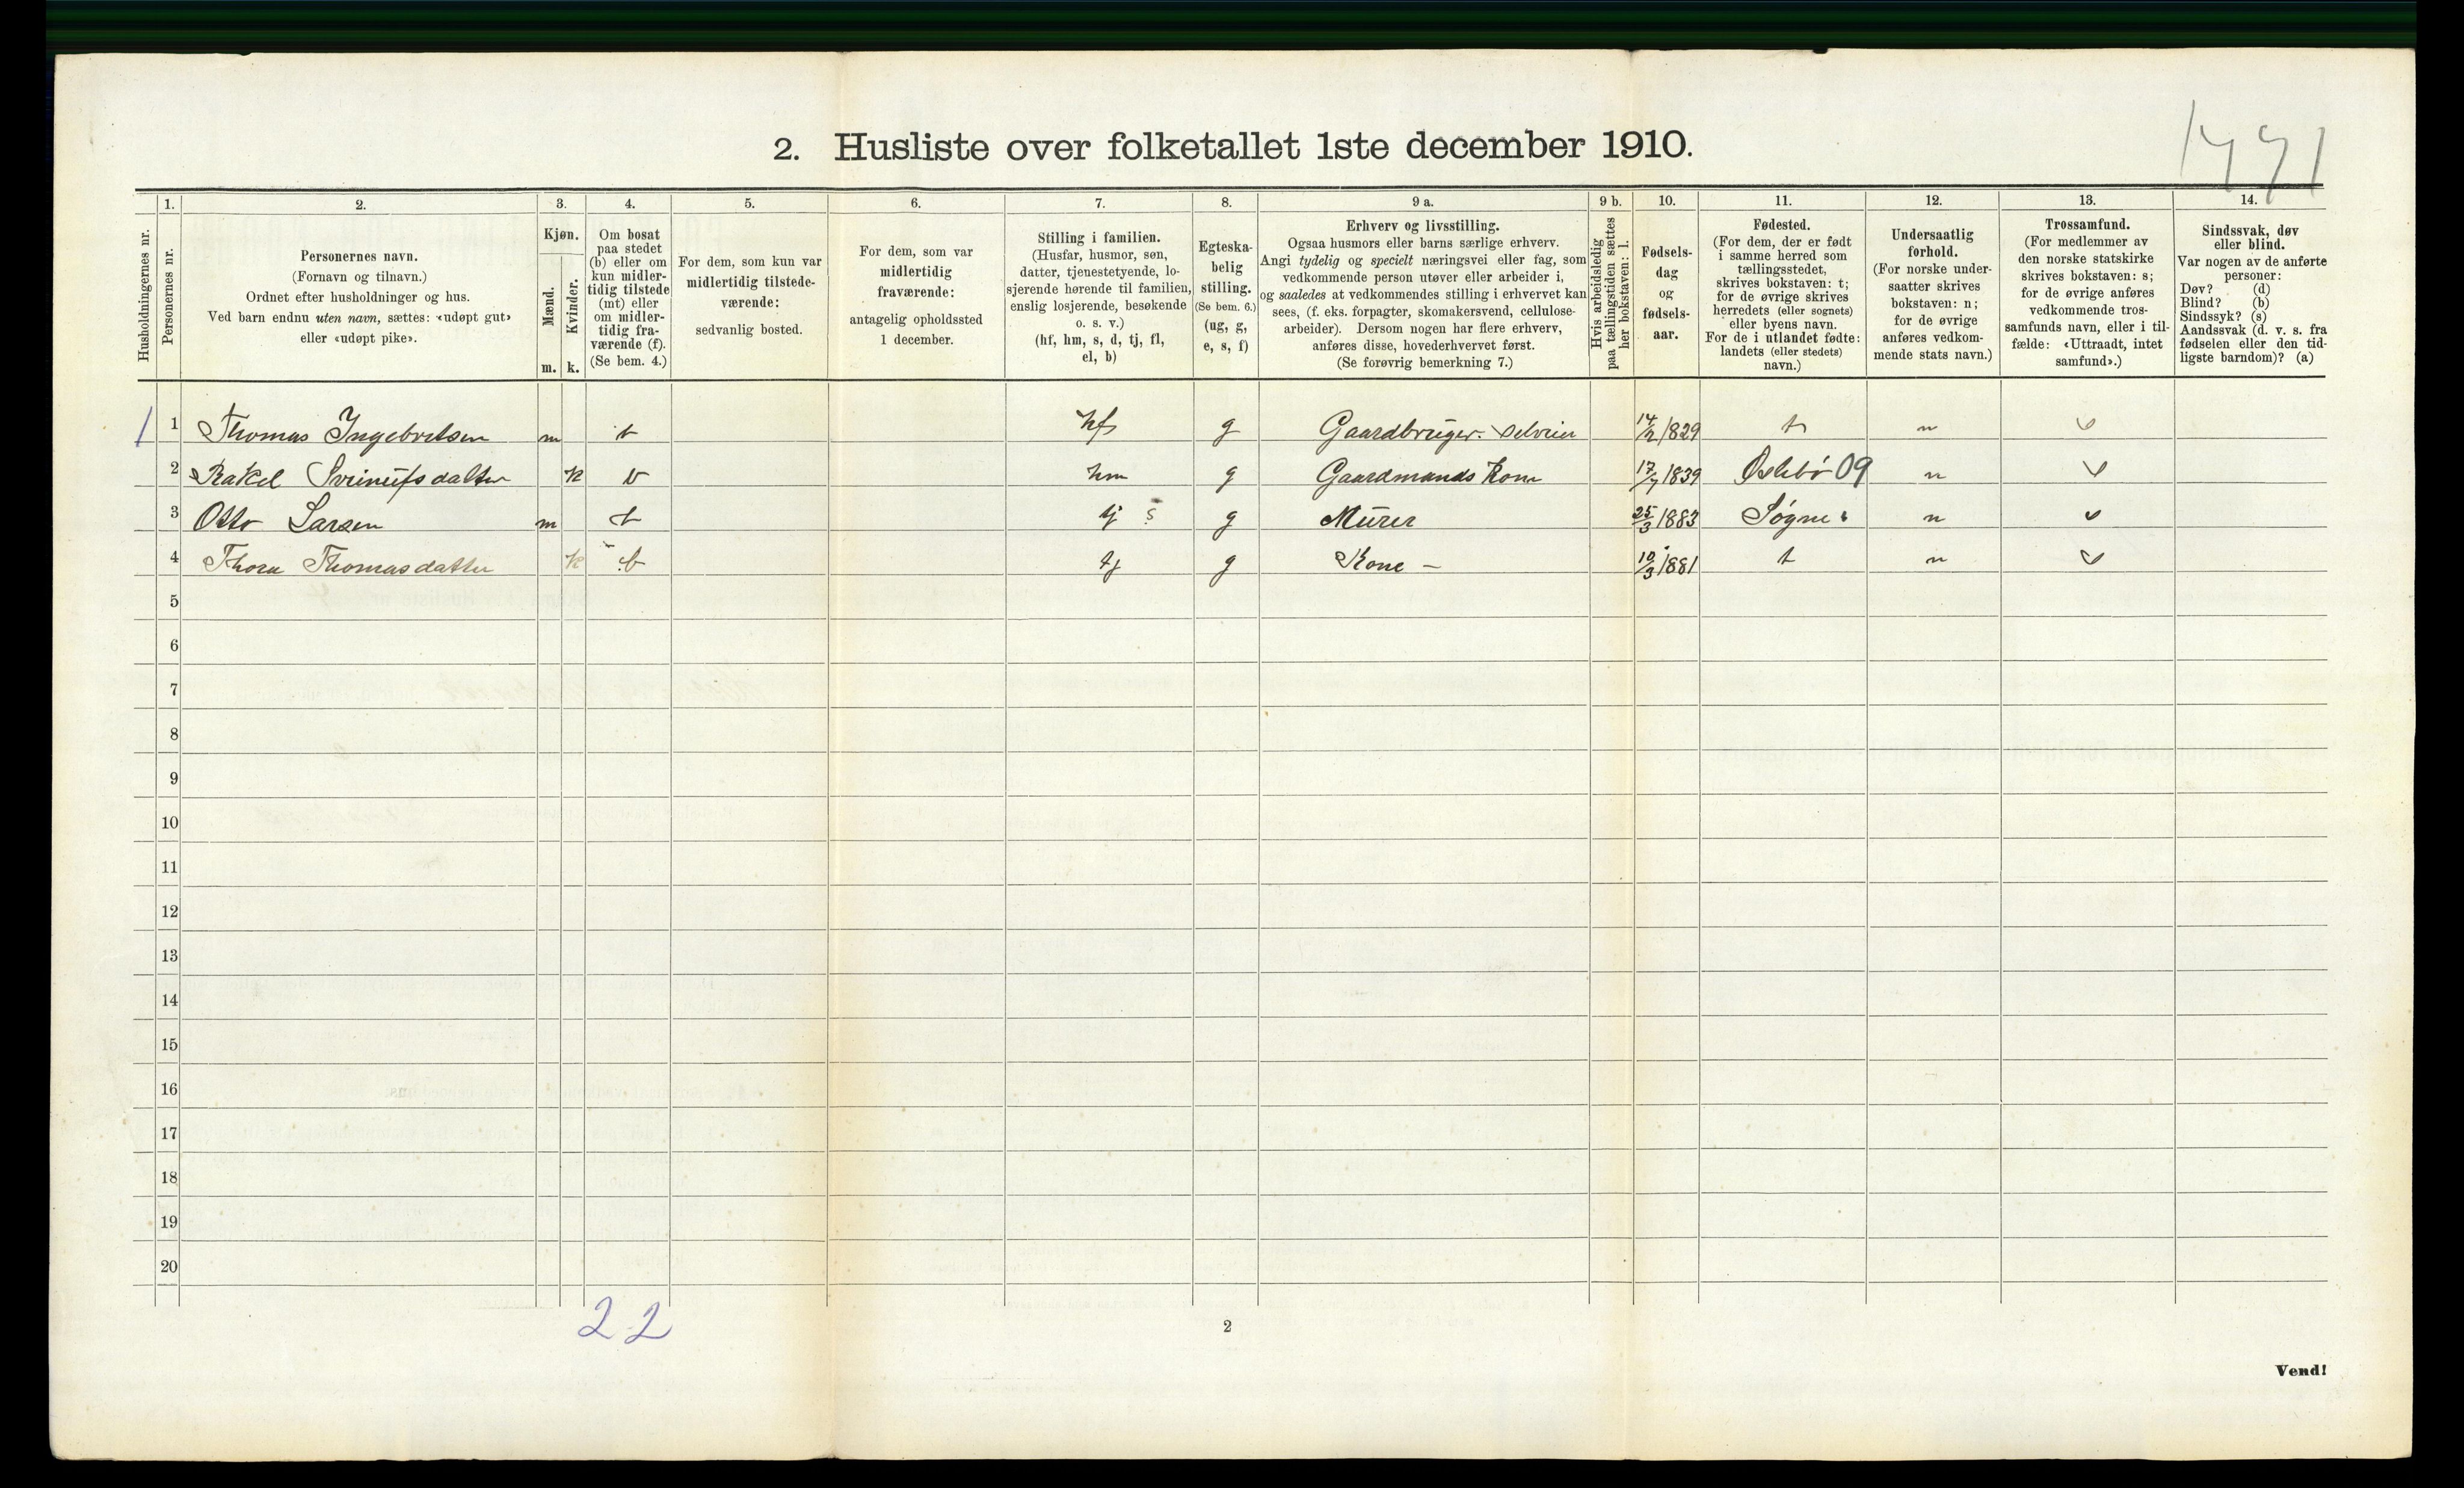 1771
2. Husliste over folketallet 1ste december 1910.
Husholdningernes nr.
1. Personernes nr.
2. Personernes navn. (Fornavn og tilnavn.) Ordnet efter husholdninger og hus. Ved barn endnu uten navn, sættes: «udøpt gut» eller «udøpt pike».
3. Kjøn. Mænd. m. Kvinder. k.
4. Om bosat paa stedet (b) eller om kun midlertidig tilstede (mt) eller om midlertidig fraværende (f). (Se bem. 4.)
5. For dem, som kun var midlertidig tilstedeværende: sedvanlig bosted.
6. For dem, som var midlertidig fraværende: antagelig opholdssted 1 december.
7. Stilling i familien. (Husfar, husmor, søn, datter, tjenestetyende, losjerende hørende til familien, enslig losjerende, besøkende o. s. v.) (hf, hm, s, d, tj, fl, el, b)
8. Egteskabelig stilling. (Se bem. 6.) (ug, g, e, s, f)
9 a. Erhverv og livsstilling. Ogsaa husmors eller barns særlige erhverv. Angi tydelig og specielt næringsvei eller fag, som vedkommende person utøver eller arbeider i, og saaledes at vedkommendes stilling i erhvervet kan sees, (f. eks. forpagter, skomakersvend, cellulosearbeider). Dersom nogen har flere erhverv, anføres disse, hovederhvervet først. (Se forøvrig bemerkning 7.)
9 b. Hvis arbeidsledig paa tællingstiden sættes her bokstaven: l.
10. Fødselsdag og fødselsaar.
11. Fødested. (For dem, der er født i samme herred som tællingsstedet, skrives bokstaven: t; for de øvrige skrives herredets (eller sognets) eller byens navn. For de i utlandet fødte: landets (eller stedets) navn.)
12. Undersaatlig forhold. (For norske undersaatter skrives bokstaven: n; for de øvrige anføres vedkommende stats navn.)
13. Trossamfund. (For medlemmer av den norske statskirke skrives bokstaven: s; for de øvrige anføres vedkommende trossamfunds navn, eller i tilfælde: «Uttraadt, intet samfund».)
14. Sindssvak, døv eller blind. Var nogen av de anførte personer: Døv? (d) Blind? (b) Sindssyk? (s) Aandssvak (d. v. s. fra fødselen eller den tidligste barndom)? (a)
1 1 Thomas Ingebretsen m b hf g Gaardbruger. Selveier 14/2 1829 t n s
2 Rakel Sveinufsdatter k b hm g Gaardmands Kone 17/7 1839 Øslebø 09 n s
3 Otto Larsen m b tj s g Murer 25/3 1883 Søgne n s
4 Thora Thomasdatter k b tj g Kone – 10/3 1881 t n s
5
6
7
8
9
10
11
12
13
14
15
16
17
18
19
20
2 2
2
Vend!